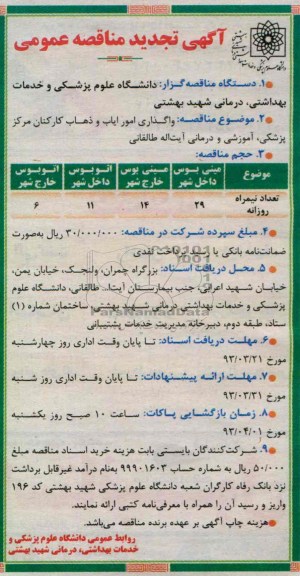 آگهی تجدید مناقصه عمومی
۱. دستگاه مناقصه‌گزار: دانشگاه علوم پزشکی و خدمات
بهداشتی، درمانی شهید بهشتی
۲. موضوع مناقصه: واگذاری امور ایاب و ذهاب کارکنان مرکز
پزشکی، آموزشی و درمانی آیت‌اله طالقانی
۳. حجم مناقصه:
موضوع مینی بوس داخل شهر مینی بوس خارج شهر اتوبوس داخل شهر اتوبوس خارج شهر
تعداد نیمراه روزانه ۲۹ ۱۴ ۱۱ ۶
۴. مبلغ سپرده شرکت در مناقصه: ۳۰/۰۰۰/۰۰۰ ریال به‌صورت
ضمانت‌نامه بانکی یا فیش پرداخت نقدی
۵. محل دریافت اسناد: بزرگراه چمران، ولنجک، خیابان یمن،
خیابان شهید اعرابی، جنب بیمارستان آیت‌ا.. طالقانی، دانشگاه علوم
پزشکی و خدمات بهداشتی درمانی شهید بهشتی، ساختمان شماره (۱)
ستاد، طبقه دوم، دبیرخانه مدیریت خدمات پشتیبانی
۶. مهلت دریافت اسناد: تا پایان وقت اداری روز چهارشنبه
مورخ ۹۳/۰۳/۲۱
۷. مهلت ارائه پیشنهادات: تا پایان وقت اداری روز شنبه
مورخ ۹۳/۰۳/۳۱
۸. زمان بازگشایی پاکات: ساعت ۱۰ صبح روز یکشنبه
مورخ ۹۳/۰۴/۰۱
۹. شرکت‌کنندگان بایستی بابت هزینه خرید اسناد مناقصه مبلغ
۵۰/۰۰۰ ریال به شماره حساب ۹۹۹۰۱۶۰۳ به‌نام درآمد غیرقابل برداشت
نزد بانک رفاه کارگران شعبه دانشگاه علوم پزشکی شهید بهشتی کد ۱۹۶
واریز و رسید آن را همراه با معرفی‌نامه کتبی ارائه نمایند.
هزینه چاپ آگهی بر عهده برنده مناقصه می‌باشد.
روابط عمومی دانشگاه علوم پزشکی و
خدمات بهداشتی، درمانی شهید بهشتی
ParsNamadData